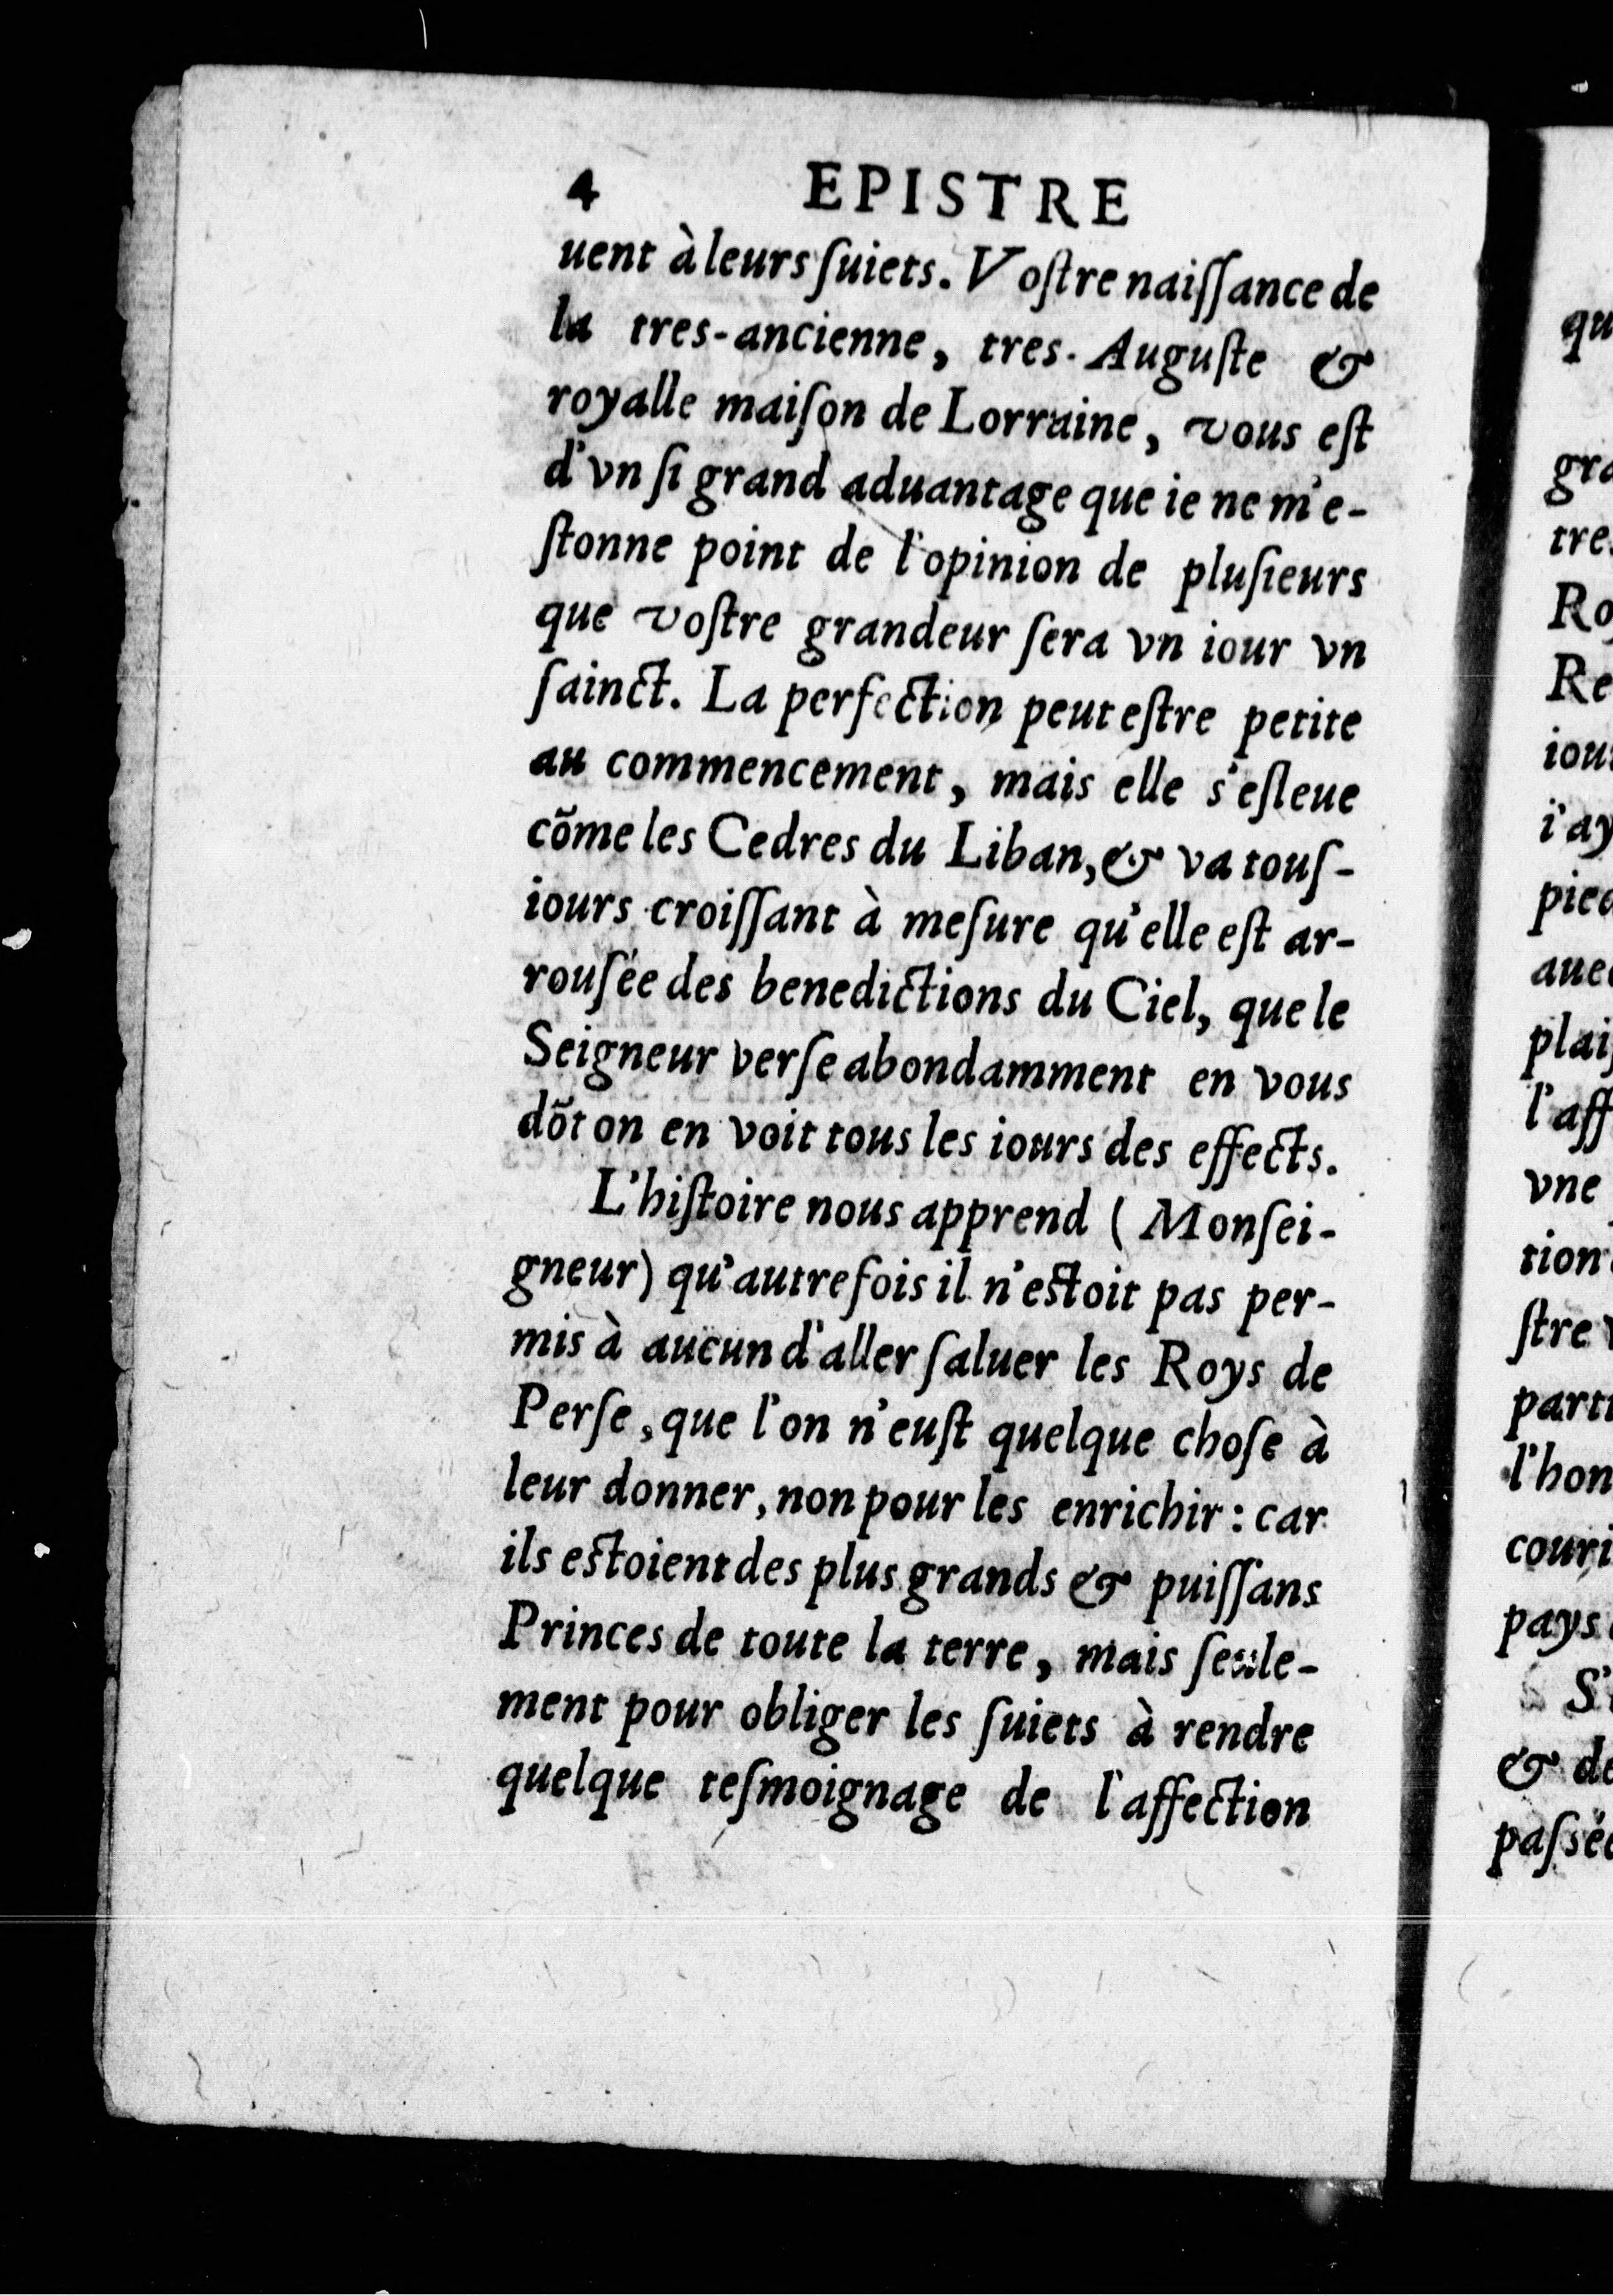 4 EPISTRE
uent à leurs ſuiets. Voſtre naiſſance de
la tres-ancienne, tres-Auguſte &
royalle maiſon de Lorraine, vous eſt
d'vn ſi grand aduantage que ie ne m'e-
ſtonne point de l'opinion de pluſieurs
que voſtre grandeur ſera vn iour vn
ſainct. La perfection peut eſtre petite
au commencement, mais elle s'eſleue
cõme les Cedres du Liban, & va touſ-
iours croiſſant à meſure qu'elle eſt ar-
rouſée des benedictions du Ciel, que le
Seigneur verſe abondamment en vous
dõt on en voit tous les iours des effects.
L'hiſtoire nous apprend (Monſei-
gneur) qu'autrefois il n'eſtoit pas per-
mis à aucun d'aller ſaluer les Roys de
Perſe, que l'on n'euſt quelque choſe à
leur donner, non pour les enrichir: car
ils eſtoient des plus grands & puiſſans
Princes de toute la terre, mais ſeule-
ment pour obliger les ſuiets à rendre
quelque teſmoignage de l'affection
qu
gra
tre
Ro
Re
iou
i'ay
pied
auec
plaiſ
l'aff
vne
tion
ſtre
part
l'hon
couri
pays
S'
& de
paſsée